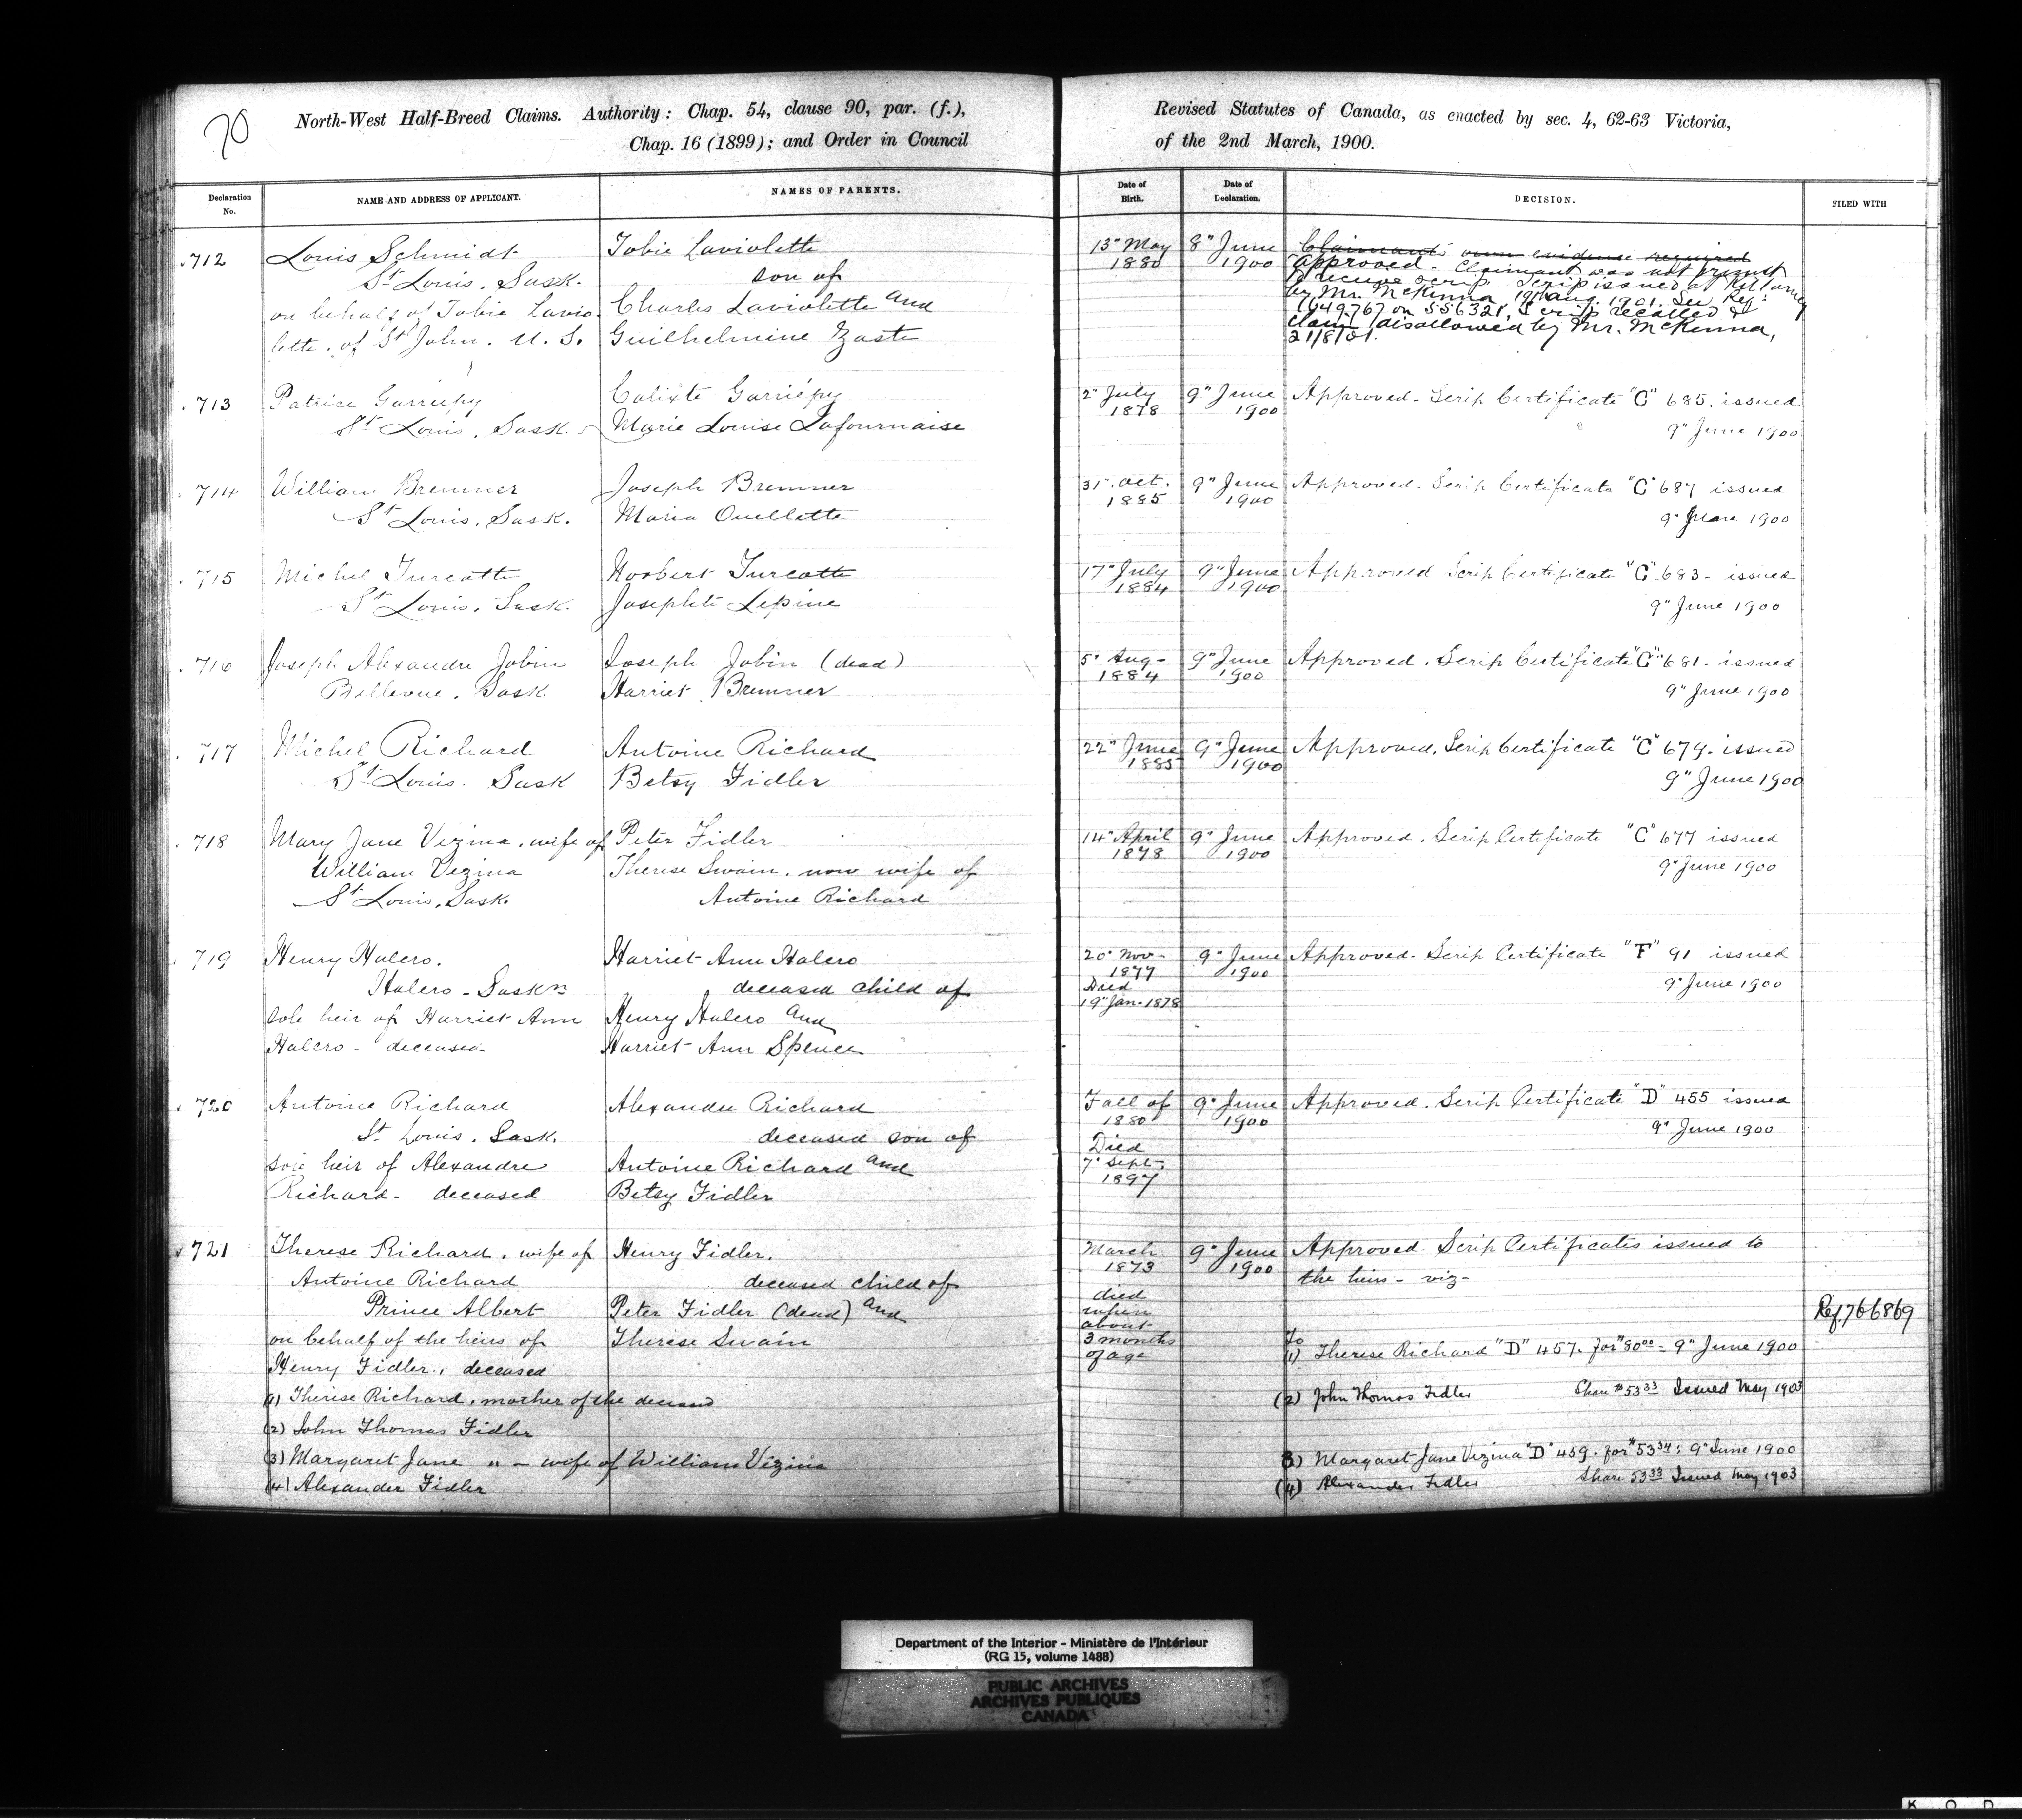 70
North-West Half-Breed Claims. Authority: Chap. 54, clause 90, par. (f.),
Chap. 16 (1899); and Order in Council
Revised Statutes of Canada, as enacted by sec. 4, 62-63 Victoria,
of the 2nd March, 1900.
Declaration No.
NAME AND ADDRESS OF APPLICANT.
NAMES OF PARENTS.
Date of Birth.
Date of Declaration.
DECISION.
FILED WITH
712
Louis Schmidt
St Louis, Sask.
on behalf of Tobie Lavio
lette of St John. U. S.
Tobie Laviolette
son of
Charles Laviolette and
Guilhelmine Zaste
13" May
1880
8" June
1900
Claimant's own evidence required
Approved. Claimant was not present
to receive scrip. Scrip issued at
by Mr. McKenna, 19th Aug. 1901. See Ref:
649767 on 556321, Scrip recalled &
claim disallowed by Mr. McKenna,
21/8/01.
713
Patrice Garriepy
St Louis, Sask.
Calixte Garriépy
Marie Louise Lafournaise
2" July
1878
9" June
1900
Approved - Scrip Certificate "C" 685. issued
9" June 1900
714
William Bremner
St Louis, Sask.
Joseph Bremner
Maria Ouellette
31" Oct.
1885
9" June
1900
Approved. Scrip Certificate "C" 687 issued
9" June 1900
715
Michel Turcotte
St Louis, Sask.
Norbert Turcotte
Josephte Lepine
17" July
1884
9" June
1900
Approved Scrip Certificate "C" 683 - issued
9" June 1900
716
Joseph Alexandre Jobin
Bellevue, Sask
Joseph Jobin (dead)
Harriet Bremner
5" Aug -
1884
9" June
1900
Approved. Scrip Certificate "C" 681 - issued
9" June 1900
717
Michel Richard
St Louis. Sask
Antoine Richard
Betsy Fidler
22" June
1885
9" June
1900
Approved. Scrip Certificate "C" 679. issued
9" June 1900
718
Mary Jane Vezina, wife of
William Vezina
St Louis, Sask.
Peter Fidler
Therese Swain, now wife of
Antoine Richard
14" April
1878
9" June
1900
Approved. Scrip Certificate "C" 677 issued
9" June 1900
719
Henry Halcro.
Halcro - Saskn
sole heir of Harriet Ann
Halcro - deceased
Harriet Ann Halcro
deceased child of
Henry Halcro and
Harriet Ann Spence
20" Nov -
1877
Died
19" Jan - 1878
9" June
1900
Approved. Scrip Certificate "F" 91 issued
9" June 1900
720
Antoine Richard
St. Louis. Sask.
sole heir of Alexandre
Richard - deceased
Alexandre Richard
deceased son of
Antoine Richard and
Betsy Fidler
Fall of
1880
Died
7" Sept -
1897
9" June
1900
Approved. Scrip Certificate "D" 455 issued
9" June 1900
721
Therese Richard, wife of
Antoine Richard
Prince Albert
on behalf of the heirs of
Henry Fidler, deceased
(1) Therese Richard, mother of the deceased
(2) John Thomas Fidler
(3) Margaret Jane " - wife of William Vezina
(4) Alexander Fidler
Henry Fidler.
deceased child of
Peter Fidler (dead) and
Therese Swain
March
1873
died
when
about
3 months
of age
9" June
1900
Approved. Scrip Certificates issued to
the heirs - viz -
To
(1) Therese Richard "D" 457. for $80.00 - 9" June 1900
(2) John Thomas Fidler Share $53.33 Issued May 1903
(3) Margaret Jane Vezina "D" 459. for $53.34: 9" June 1900
(4) Alexander Fidler Share 53.33 Issued May 1903
Ref. 766869
Department of the Interior - Ministère de l'Intérieur
(RG 15, volume 1488)
PUBLIC ARCHIVES
ARCHIVES PUBLIQUES
CANADA
K O D